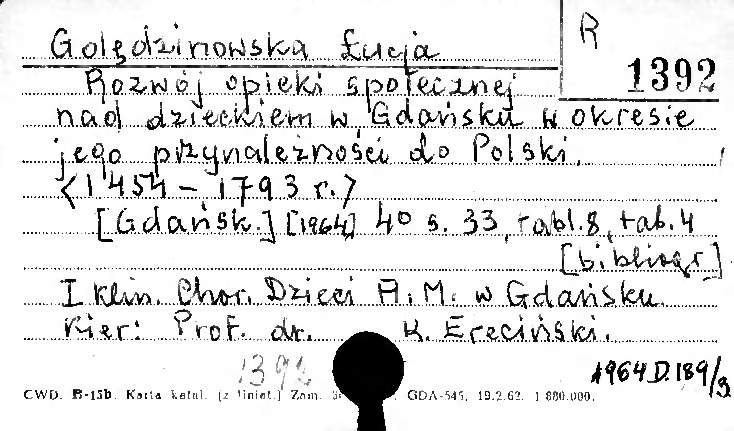 R
1392
Golędzinowska Łucja
Rozwój opieki społecznej
nad dzieckiem w Gdańsku w okresie
jego przynależności do Polski.
<1454 - 1793 r.>
[Gdańsk.] [1964] 4° s. 33, tabl. 8, tab. 4
[bibliogr.]
I Klin. Chor. Dzieci A. M. w Gdańsku.
Kier: Prof. dr. K. Ereciński.
1392
1964 D. 189/3
CWD. B-15b. Karta katal. (z liniat.) Zam. GDA-545, 19.2.62. 1 880.000.